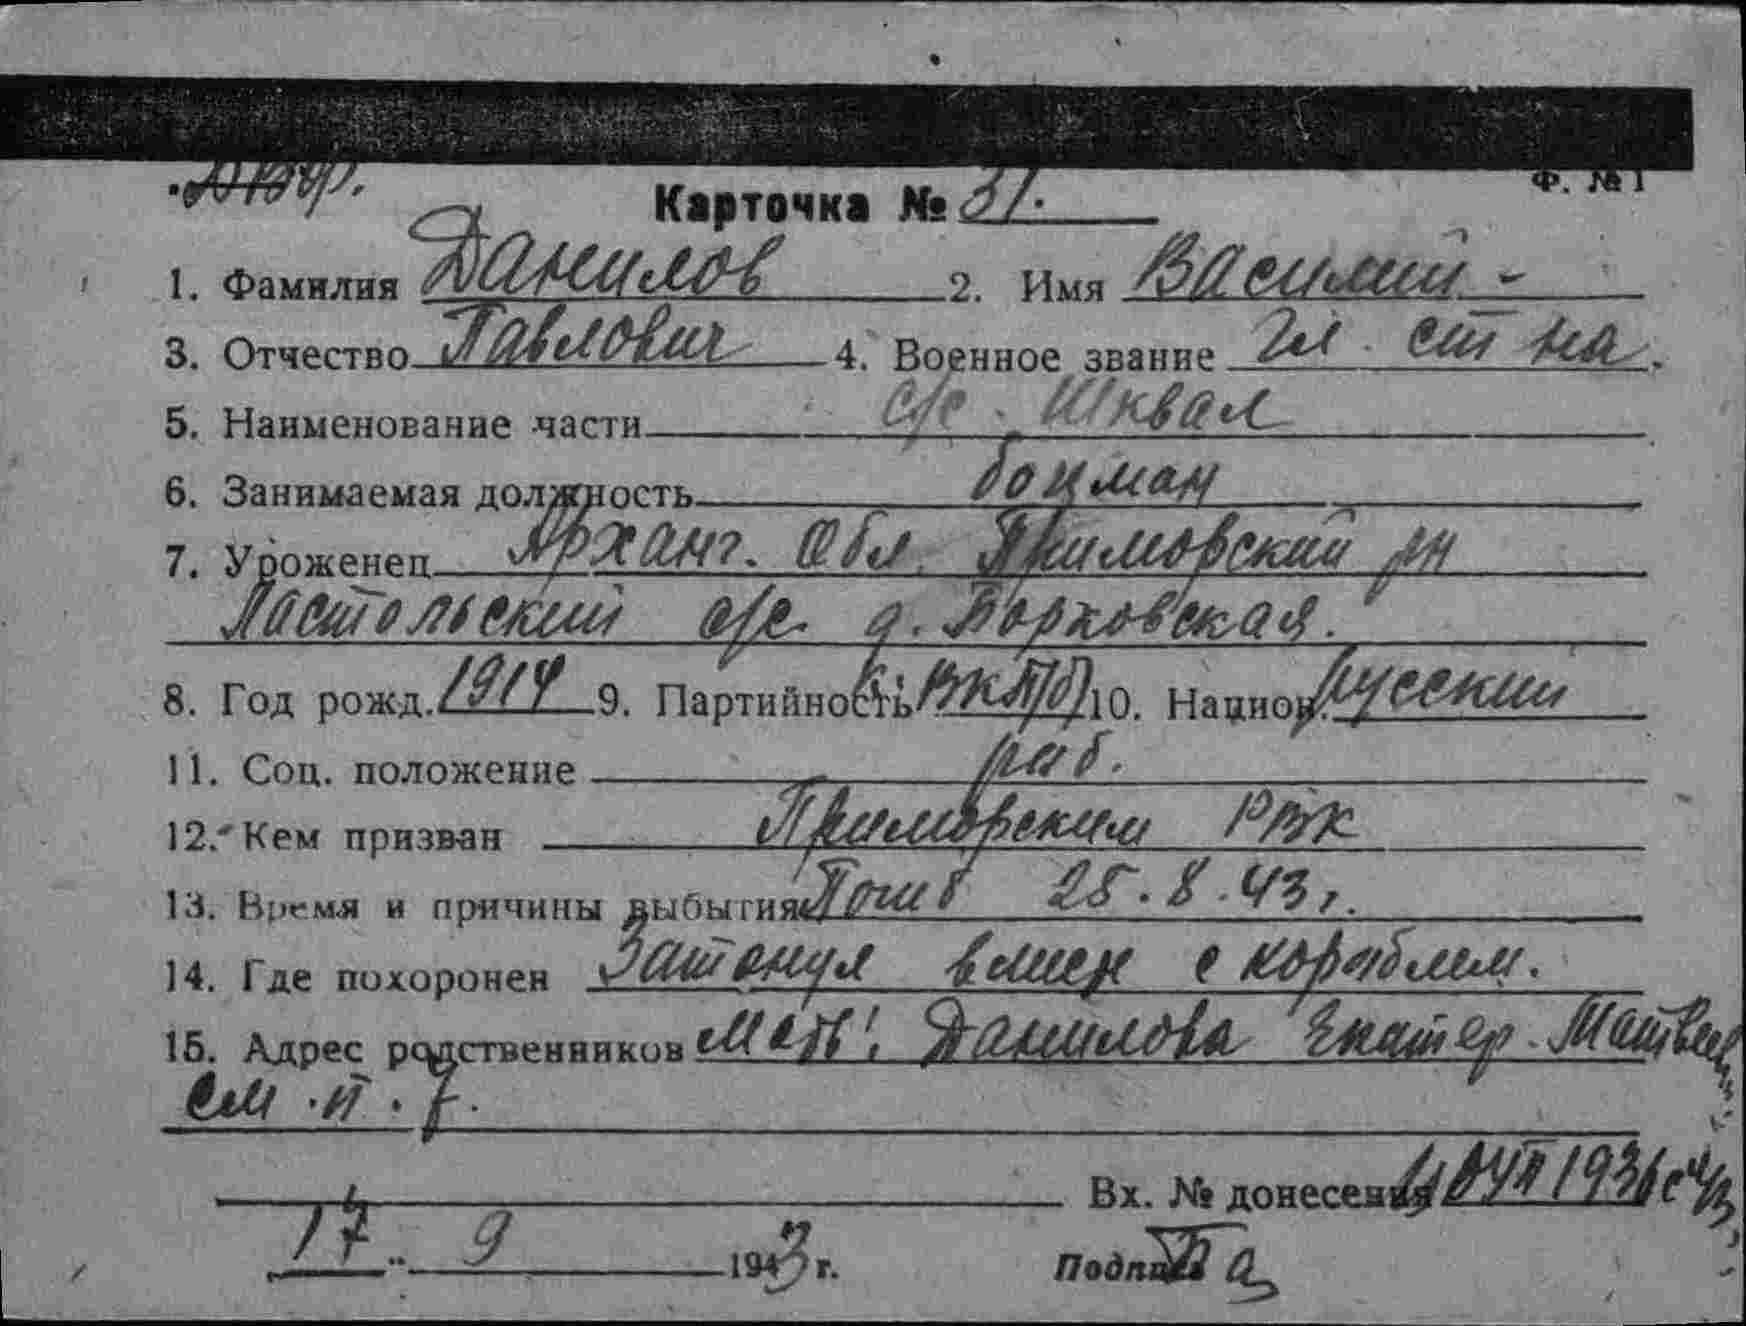 Ф. № 1
Карточка № 31.
1. Фамилия Данилов 2. Имя Василий -
3. Отчество Павлович 4. Военное звание Гл. ст на.
5. Наименование части с/с. Шквал
6. Занимаемая должность боцман
7. Уроженец Арханг. Обл. Приморский рн
Ластольский с/с. д. Борковская.
8. Год рожд. 1914 9. Партийность к. ВКП/б/ 10. Национ. русский
11. Соц. положение раб.
12. Кем призван Приморским РВК
13. Время и причины выбытия Погиб 25.8.43 г.
14. Где похоронен Затонул вмест с кораблем.
15. Адрес родственников Мать: Данилова Екатер. Матвеев
см. п. 7.
Вх. № донесения
17 " 9 1943 г. Подпись